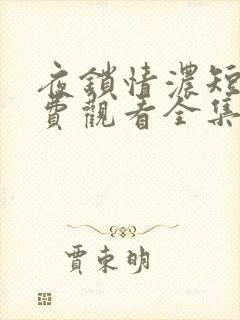 夜鎖情濃短
費觀看全集
賈東明